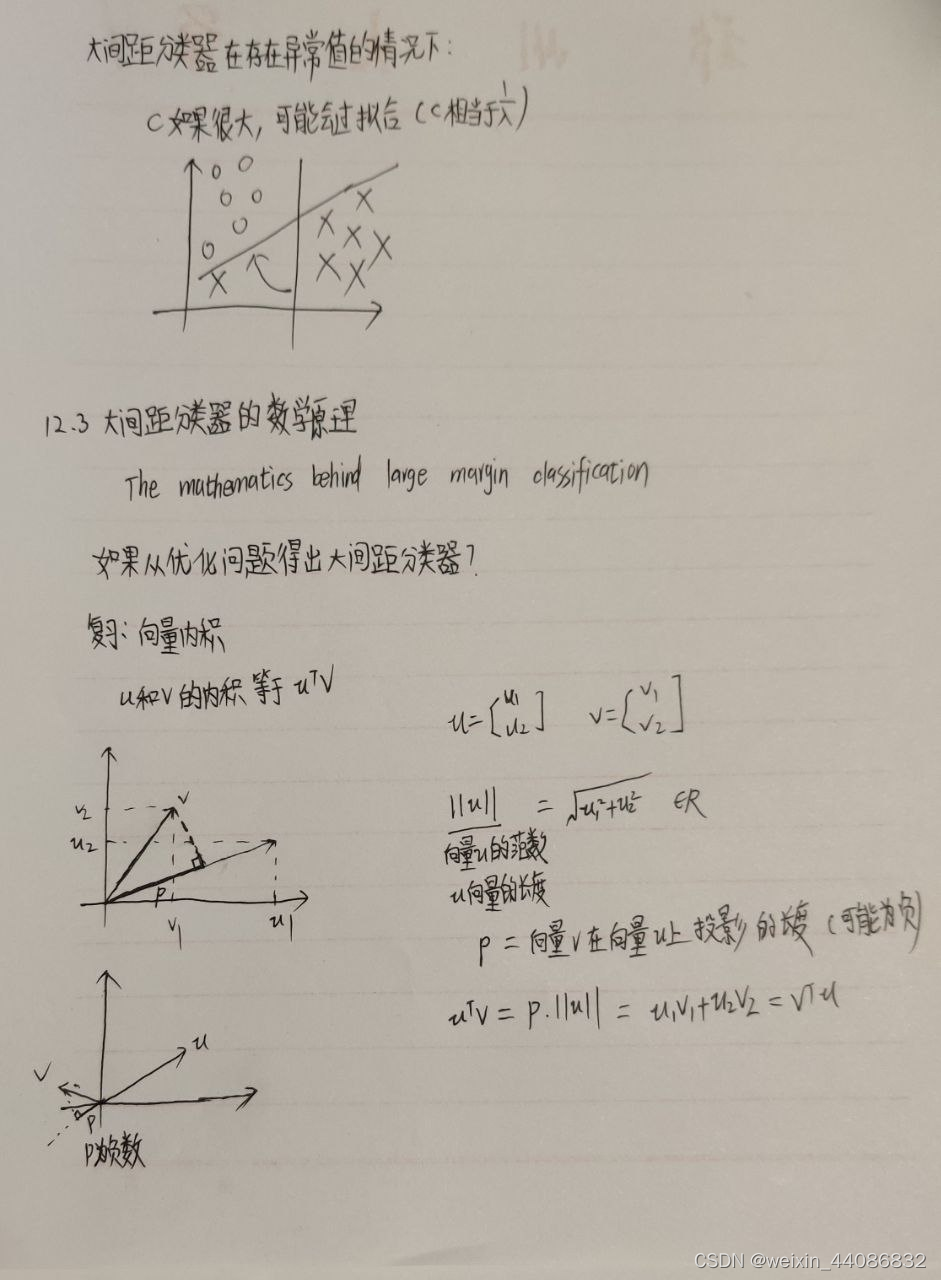 大间距分类器在存在异常值的情况下：
C如果很大，可能会过拟合（C相当于1/λ）
12.3 大间距分类器的数学原理
The mathematics behind large margin classification
如果从优化问题得出大间距分类器？
复习：向量内积
u和v的内积等于 uᵀv
u=[u1 u2] v=[v1 v2]
v2
v
u2
p
v1
u1
||u|| = √(u1²+u2²) ∈R
向量u的范数
u向量的长度
p = 向量v在向量u上投影的长度（可能为负）
uᵀv = p.||u|| = u1v1+u2v2 = vᵀu
u
v
p
p为负数
CSDN @weixin_44086832